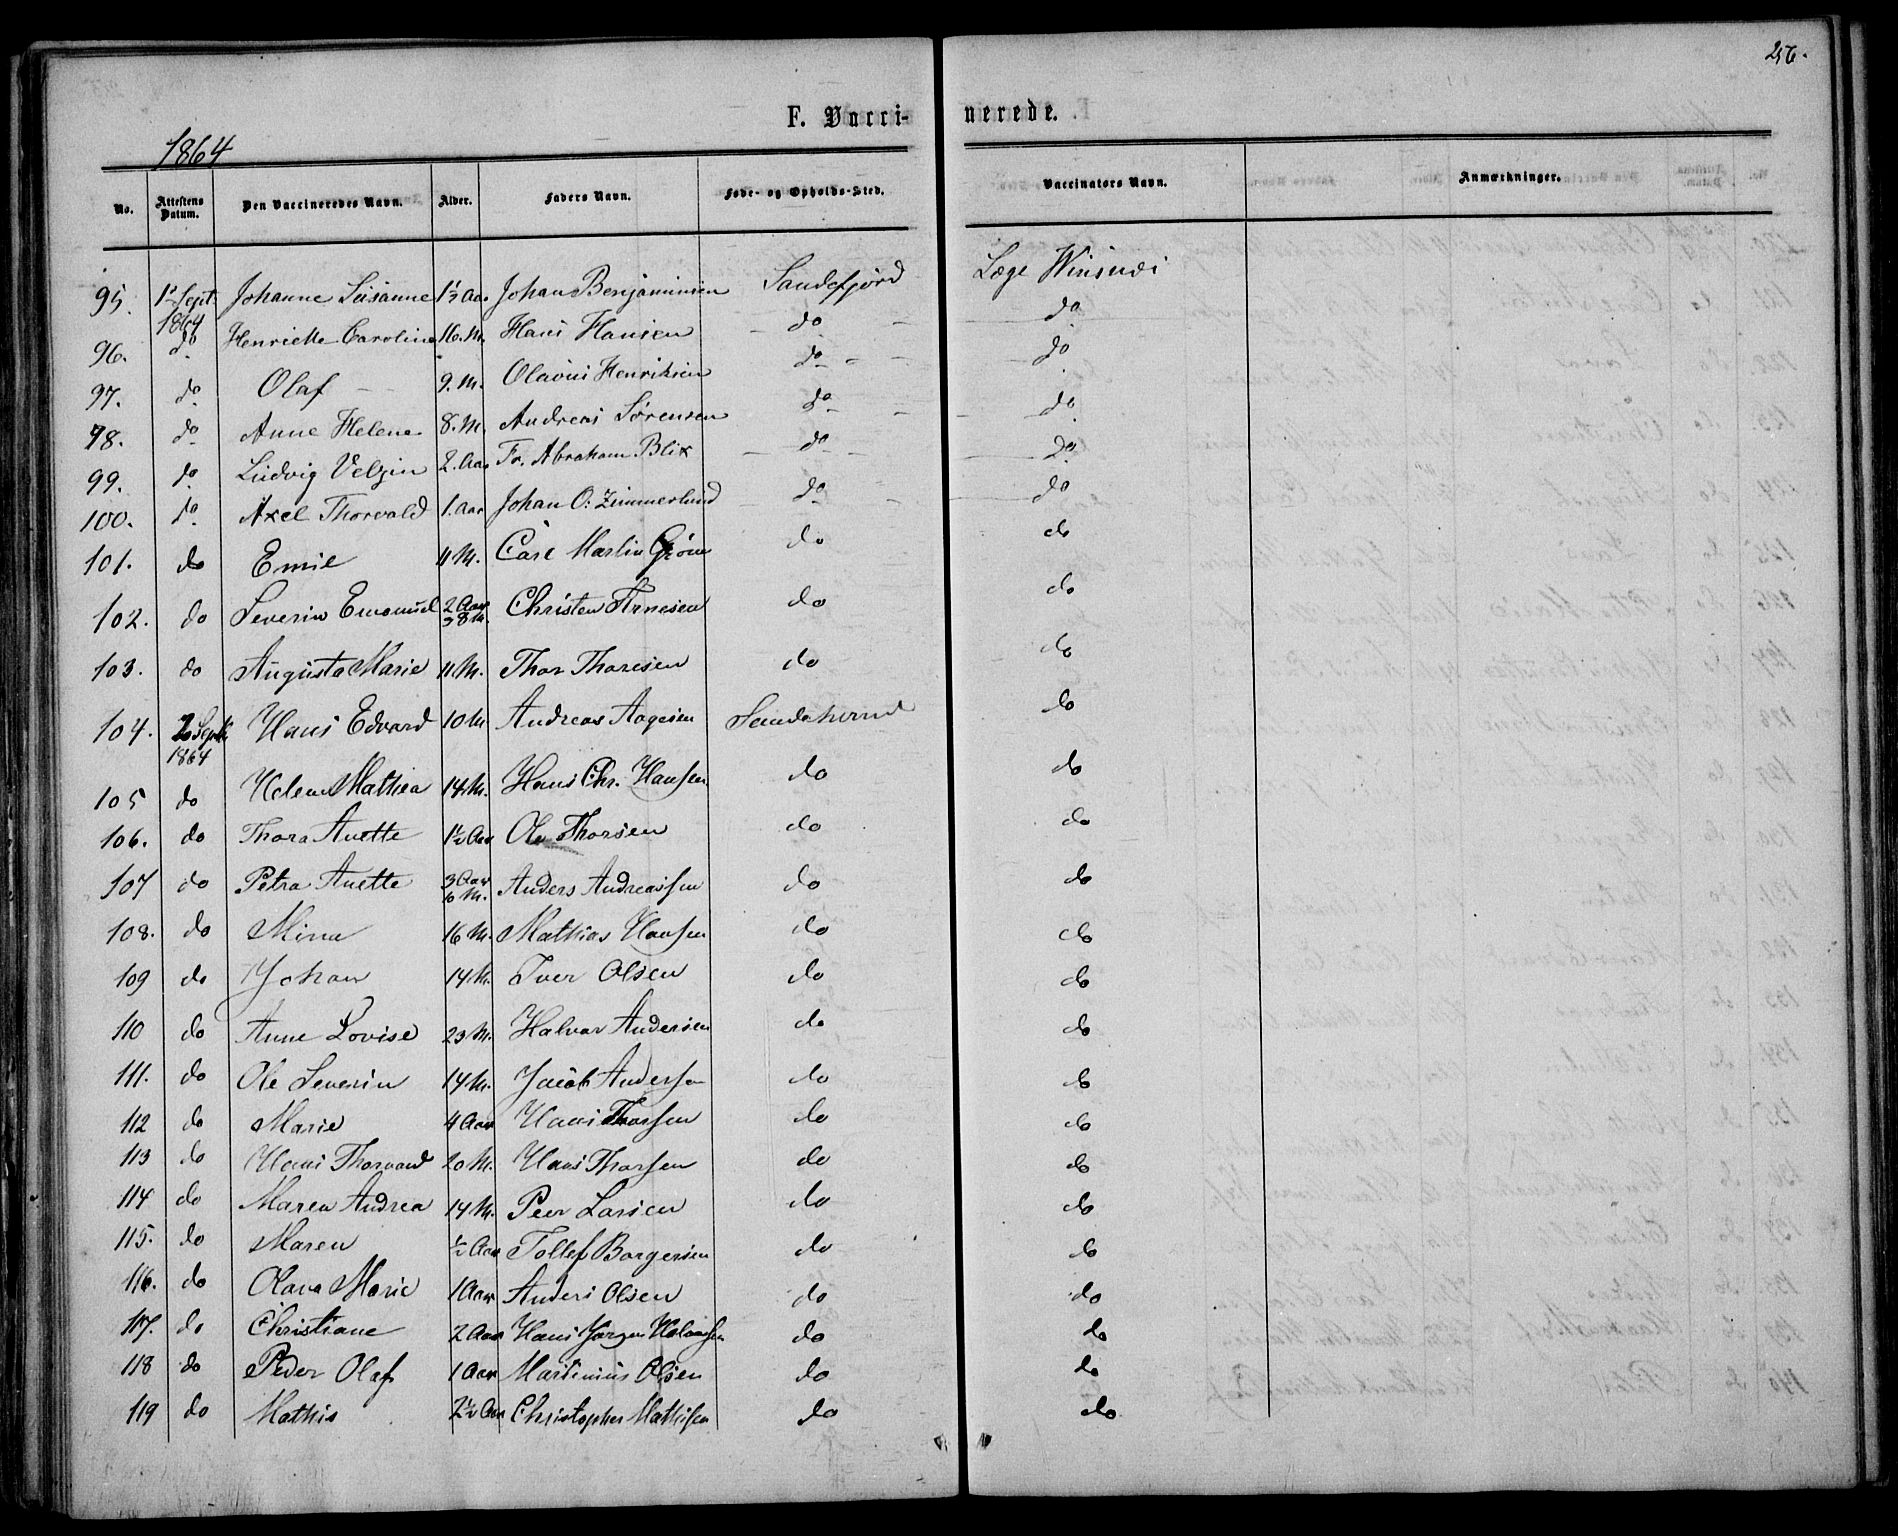 256.
F. Vacci- nerede.
1864
No. Attestens Datum. Den Vaccineredes Navn. Alder. Faders Navn. Føde- og Opholds-Sted. Vaccinators Navn. Anmærkninger.
95. 1 Sept. 1864 Johanne Susanne 1½ Aar Johan Benjaminsen Sandefjord Læge
96. do Henriette Caroline 16. M. Hans Hansen do do
97. do Olaf 9. M. Olavus Henriksen do do
98. do Anne Helene 8. M. Andreas Sørensen do do
99. do Ludvig 2. Aar Fr. Abraham Blix do do
100. do Axel Thorvald 1. Aar Johan O. Zimmerlund do do
101. do Emil 11 M. Carl Martin do do
102. do Severin Emanuel 2 Aar 8 M. Christen Arnesen do do
103. do Augusta Marie 11 M. Thor Thoresen do do
104. 2 Sept. 1864 Hans Edvard 10 M Andreas Aagesen do
105 do Helene Mathea 14 M. Hans Chr. Hansen do do
106. do Thora Anette 1½ Aar Ole Thorsen do do
107 do Petra Anette 3 Aar 6 M. Anders Andreassen do do
108. do Mina 16 M. Mathias Hansen do do
109 do Johan 14 M. Iver Olsen do do
110 do Anne Lovise 23 M. Halvor Andersen do do
111. do Ole Severin 14 M. Jacob Andersen do do
112 do Marie 4 Aar Hans Thorsen do do
113 do Hans 20 M. Hans Thorsen do do
114 do Maren Andrea 14 M. Peer Larsen do do
115. do Maren ½ Aar Tollef Borgersen do do
116. do Olava Marie 1 Aar Anders Olsen do do
117. do Christiane 2 Aar Hans Jørgen do do
118 do Peder Olaf 1 Aar Martinius Olsen do do
119 do Mathis 2½ Aar Christopher Mathisen do do